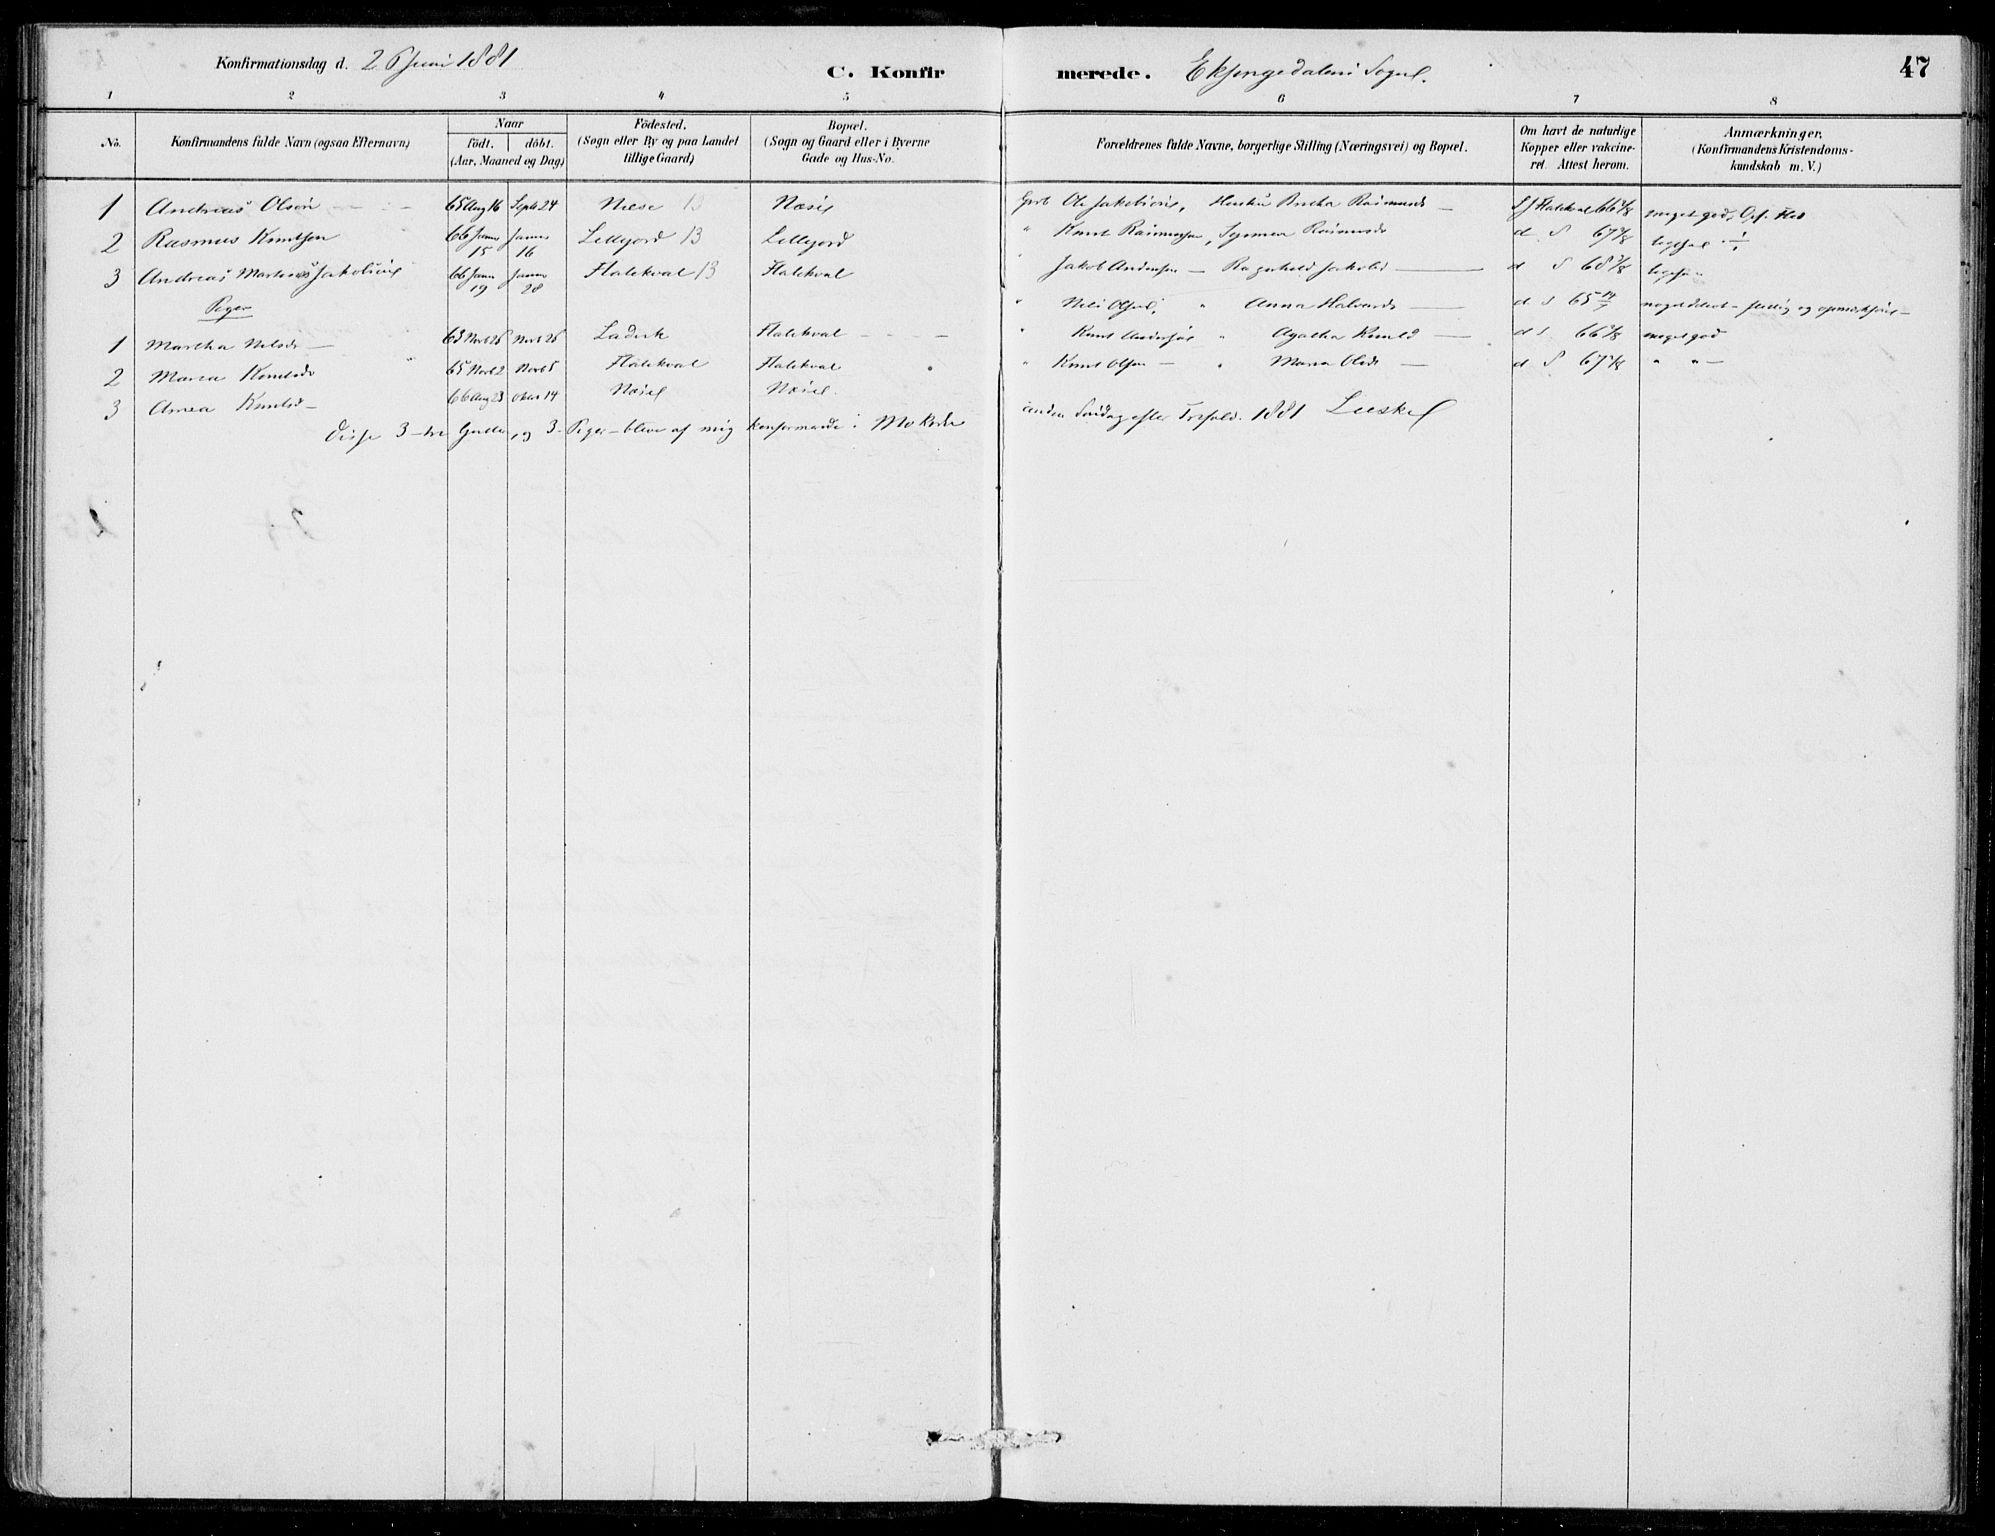 Konfirmationsdag d. 26 Juni 1881 C. Konfir merede. Eksingedalens Sogn. 47
1 2 3 4 5 6 7 8
No. Konfirmandens fulde Navn (ogsaa Efternavn) Naar födt. döbt. (Aar, Maaned og Dag) Födested. (Sogn eller By og paa Landet tillige Gaard) Bopæl. (Sogn og Gaard eller i Byerne Gade og Hus-No. Forældrenes fulde Navne, borgerlige Stilling (Næringsvei) og Bopæl. Om havt de naturlige Kopper eller vakcineret. Attest herom. Anmærkninger, (Konfirmandens Kristendomskundskab m. V.)
1 Andreas Olsen 65 Aug 16 Septb 24 Næse 13 Næse Ole Jakobsen, Brita Rasmusd meget god
2 Rasmus Knutsen 66 Janu 15 Janu 16 Lillejord 13 Lillejord " Knut Rasmussen, Rasmusd d S 67
3 Andreas Martinus Jakobsen 66 Janu 19 Janu 28 Flatekval 13 Flatekval " Jakob Andersen — Ragnhild Jakobsd d S 68
Piger
1 Martha Nilsd 63 Novb 26 Flatekval " Nils Olsen, " Anna Halvardsd d S 65
2 Maria Knutsd 65 Novb 2 Novb 5 Flatekval Flatekval " Knut Andersen " Agatha Knutsd d S 66 meget god
3 Anna Knutsd 66 Aug 23 Oktbr 14 Næse Næse " Knut Olsen — " Maria Olsd d S 67 " "
Disse 3 tre Gutter, og 3 Piger blev af mig konfirmerede i Mo Kirke anden Søndag efter Trefold. 1881